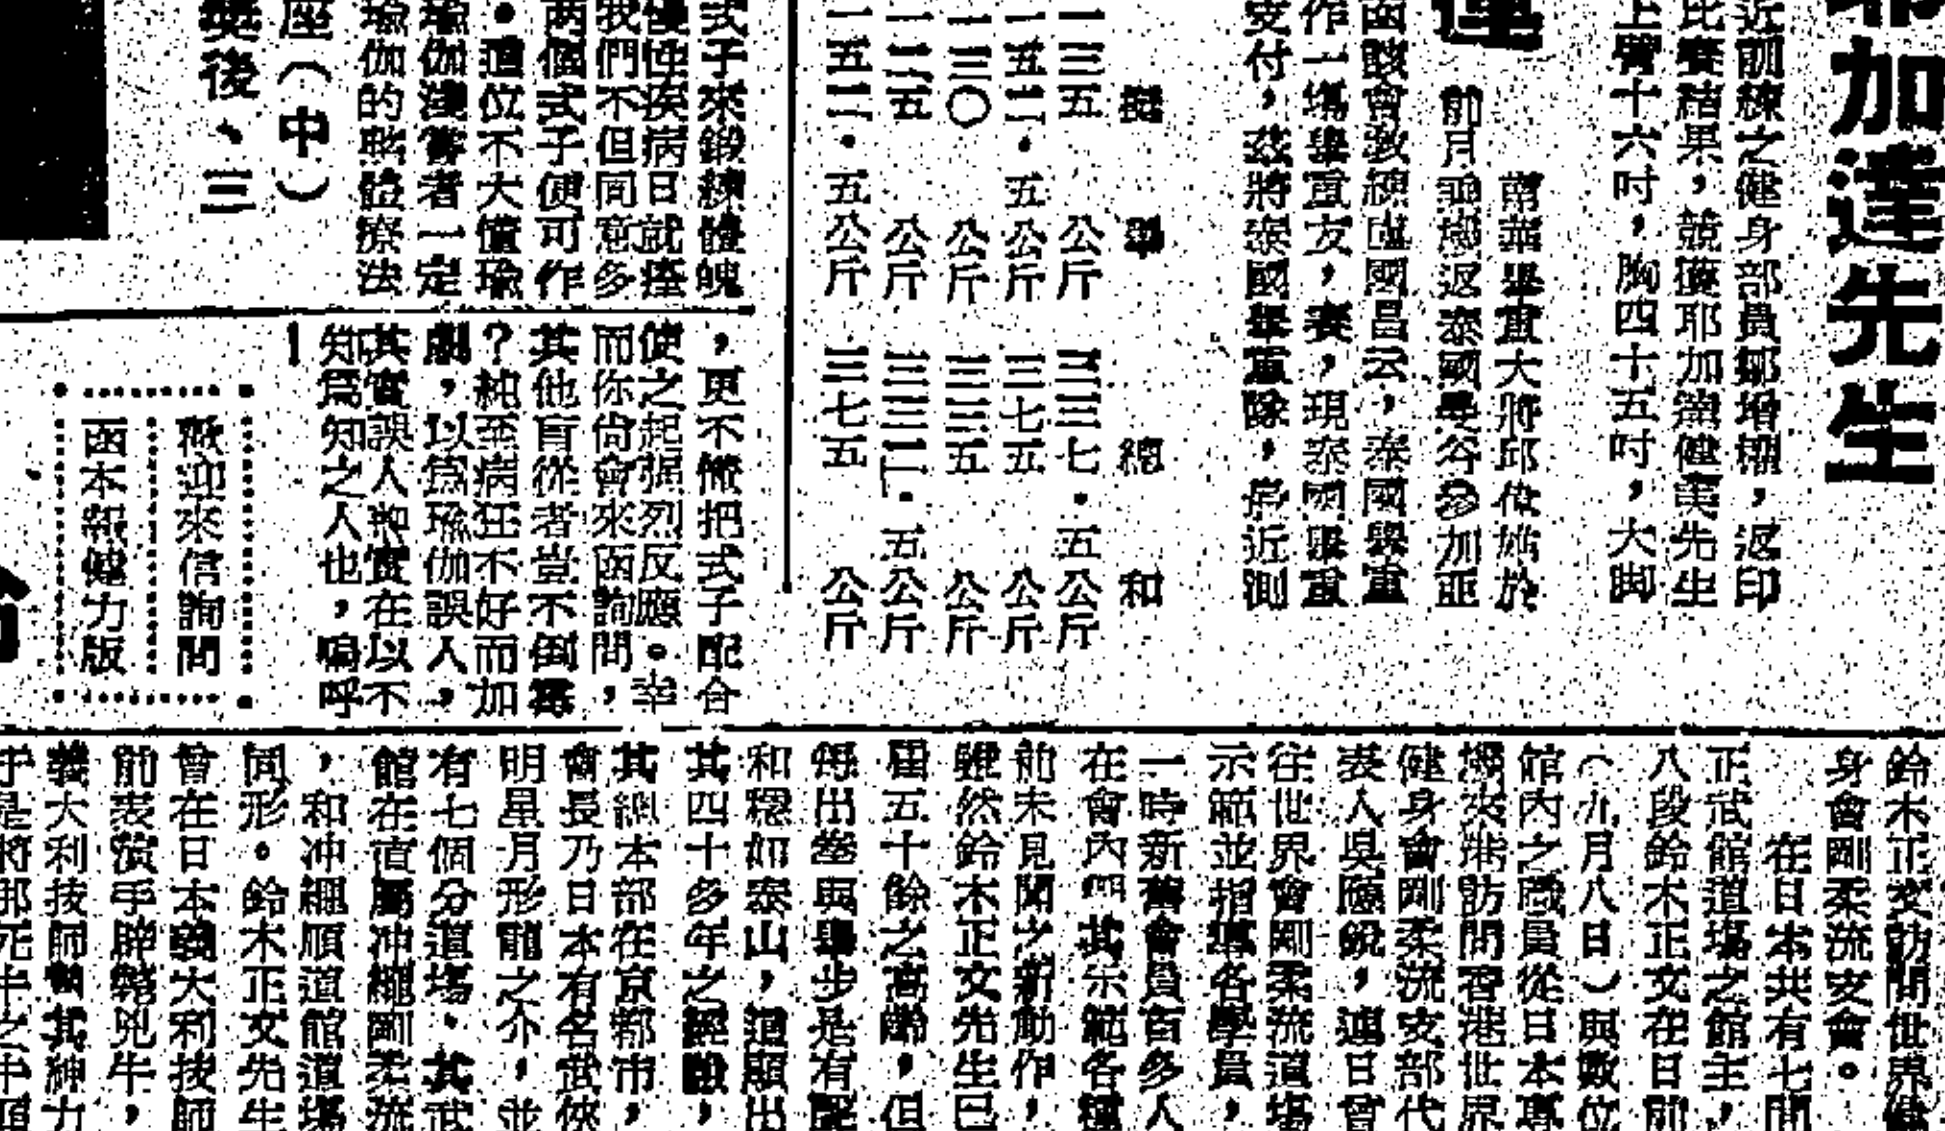 加達先生
近前練之健身部員鄒增棚，返印
比賽結果，競獲耶加達健美先生
上臂十六吋，胸四十五吋，大脚
南華舉重大將邱偉雄於
前月乘機返泰國曼谷參加亞
函該會教練盧國昌云，泰國舉重
作一塲舉重友，賽，現泰國舉重
支付，茲將泰國舉重隊，最近測
挺舉　總和
一三五　公斤　三三七・五公斤
一五二・五公斤　三七五　公斤
一三〇　公斤　三三五　公斤
一二五　公斤　三三二・五公斤
一五二・五公斤　三七五　公斤
式子來鍛練體魄
慢性疾病日就痊
我們不但同意多
两個式子便可作
。這位不大懂瑜
瑜伽淺嘗者一定
瑜伽的肢體療法
座（中）
獎後、三
，更不懂把式子配合
使之起强烈反應。幸
而你尙會來函詢問，
其他盲從者豈不倒霉
？純至病狂不好而加
劇，以爲瑜伽誤人，
其實誤人却實在以不
知爲知之人也，嗚呼
！
歡迎來信詢問
函本報健力版
鈴木正文訪問世界健
身會剛柔流支會。
在日本共有七間
正武館道塲之館主，
八段鈴木正文在日前
（九月八日）與數位
館內之職員從日本專
程來港訪問香港世界
健身會剛柔流支部代
表人吳應銳，連日曾
往世界會剛柔流道塲
示範並指導各學員，
一時新舊會員百多人
在會內　其示範各種
前未見聞之新動作，
雖然鈴木正文先生已
屆五十餘之高齡，但
每出拳與舉步是有配
和穩如泰山，這顯出
其四十多年之經驗，
其總本部在京都市，
會長乃日本有名武俠
明星月形龍之介，並
有七個分道塲。其武
館在直屬冲繩剛柔流
，和冲繩順道館道塲
同形。鈴木正文先生
曾在日本義大利技師
前表演手辟斃兇牛，
義大利技師　其紳力
于是將那死牛之牛頭